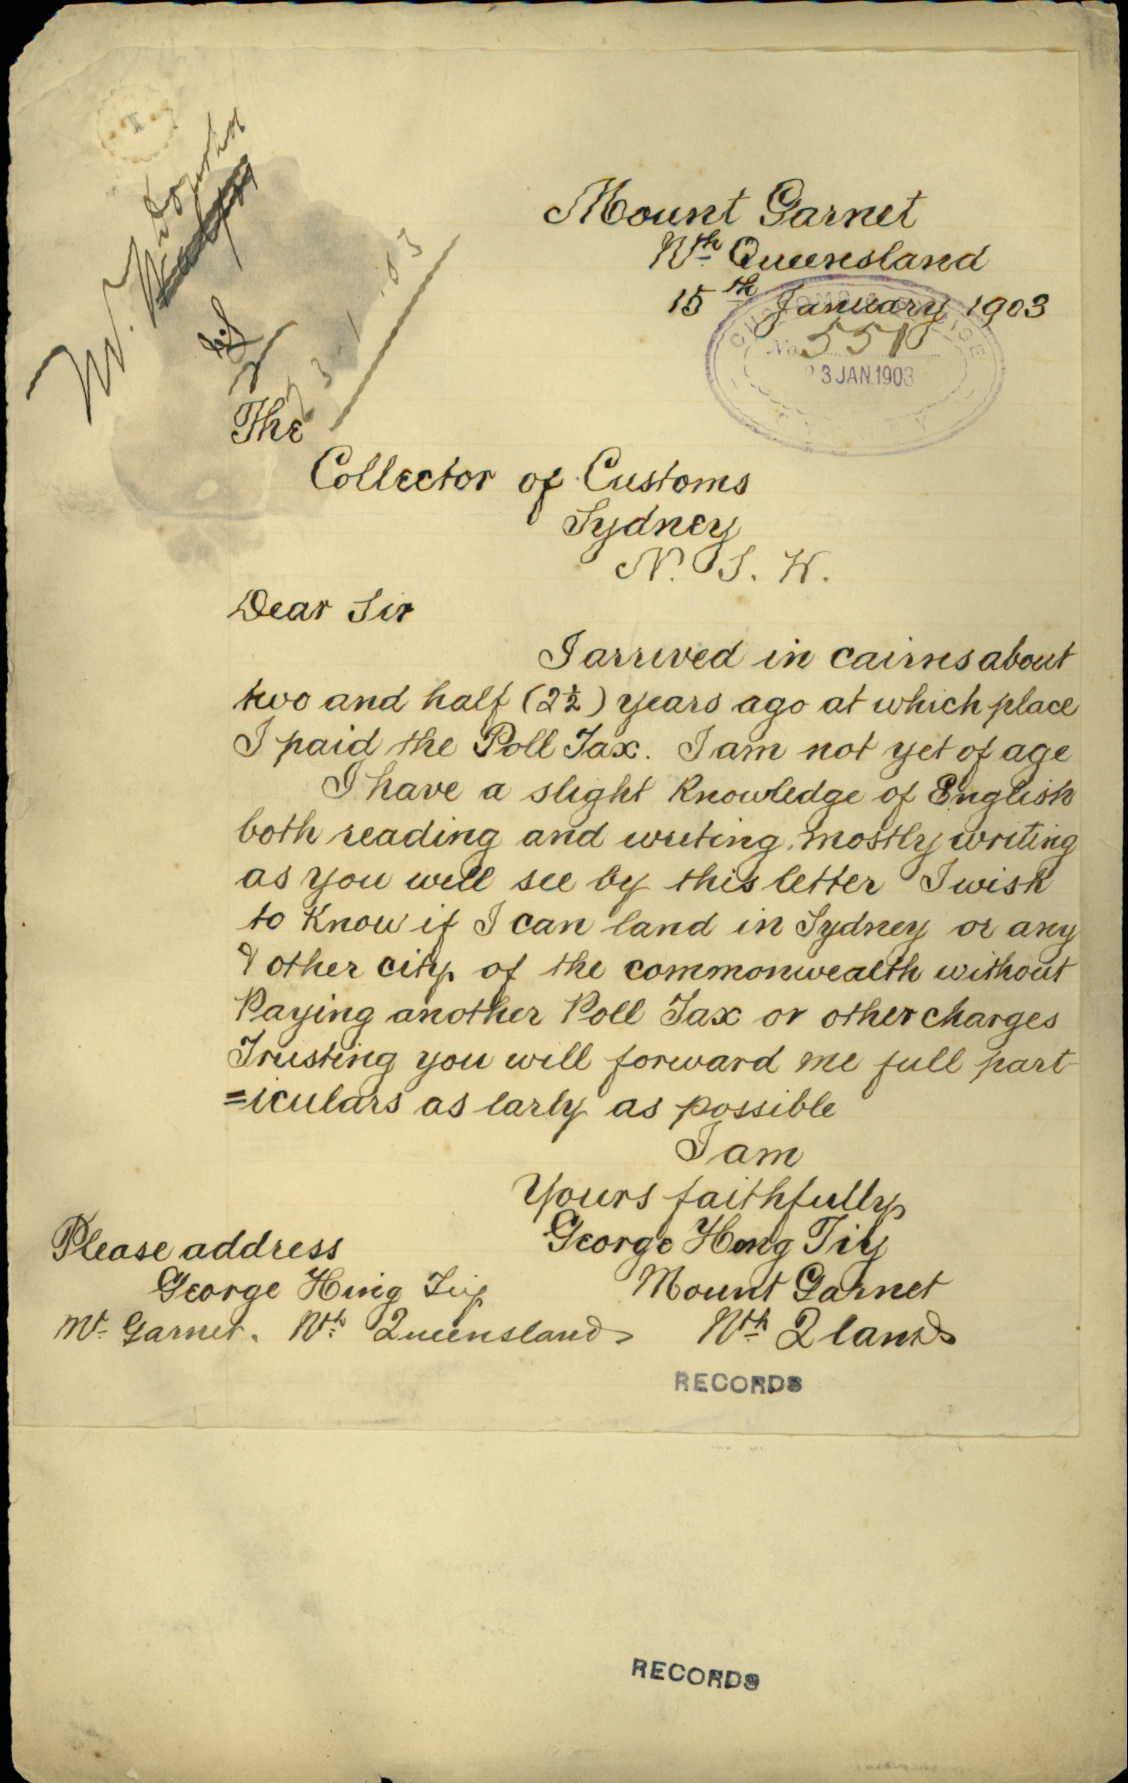 Mount Garnet
Nth Queensland
15th January 1903
CUSTOMS
No 551
23 JAN. 1903
SYDNEY
W.
23-1-03
The
Collector of Customs
Sydney
N. S. W.
Dear Sir
I arrived in cairns about
two and half (2½) years ago at which place
I paid the Poll Tax. I am not yet of age
I have a slight Knowledge of English
both reading and writing, mostly writing
as you will see by this letter I wish
to Know if I can land in Sydney or any
other city of the commonwealth without
Paying another Poll Tax or other charges
Trusting you will forward me full part
=iculars as early as possible
I am
Yours faithfully
George Hong Tiy
Mount Garnet
Nth Qland
Please address
George Hing
Mt. Garnet. Nth Queensland
RECORDS
RECORDS